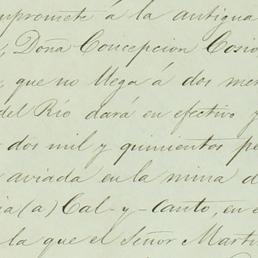 mpromete á la antigua
, Doña Concepcion Cosio
, que no llega á dos me
del Rio dará en efectivo y
dos mil y quinientos pe
aviada en la mina d
ia (a) Cal-y-Canto, en
la que el Señor Marti